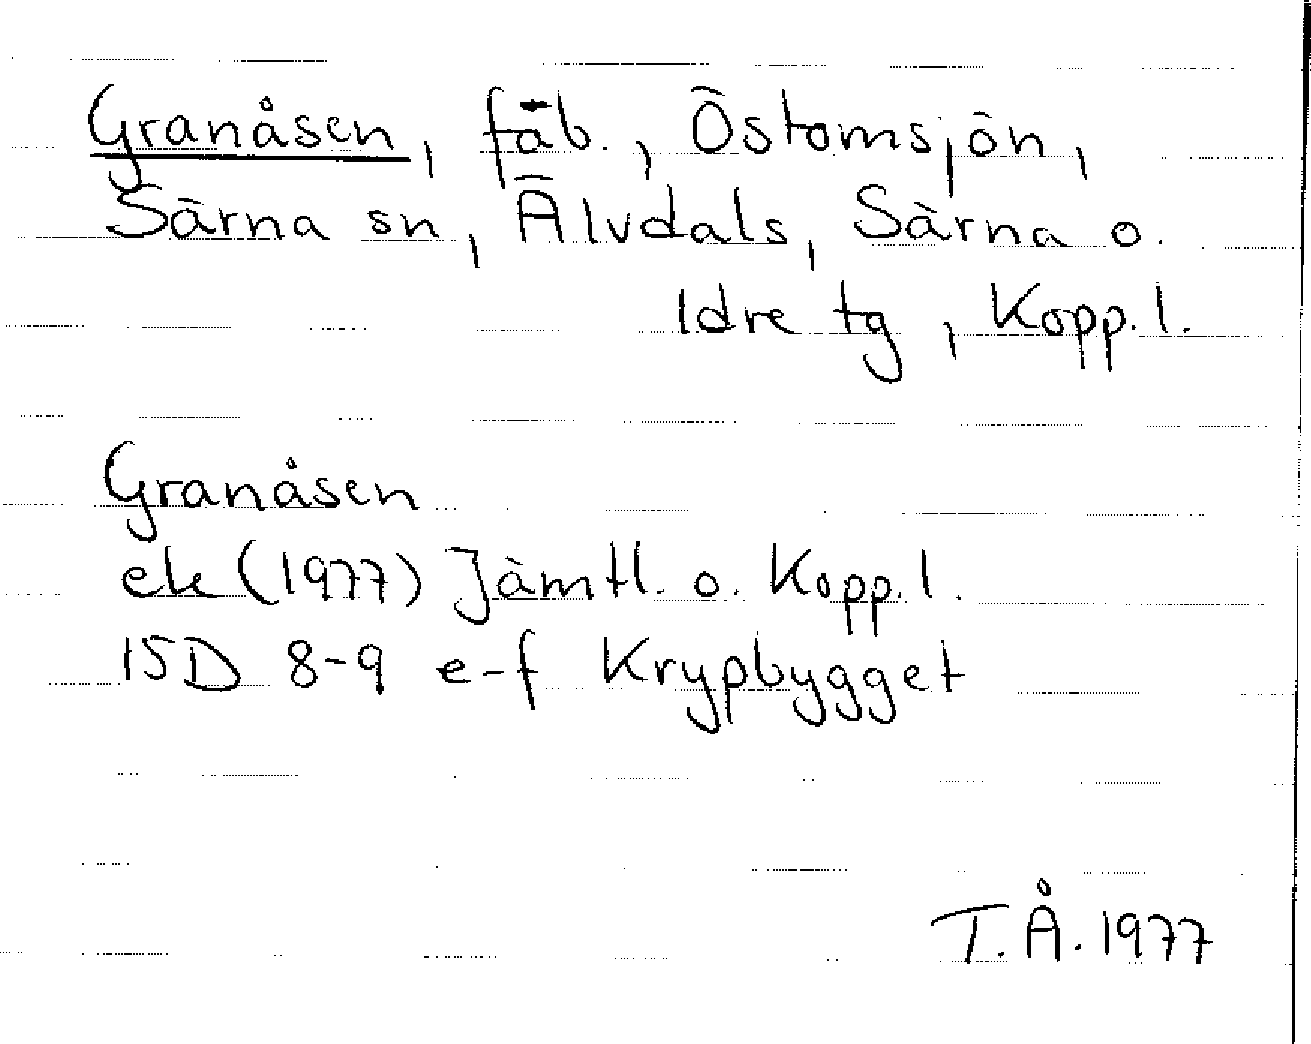 Granåsen, fäb., Östomsjön,
Särna sn, Älvdals, Särna o.
Idre tg, Kopp. l.
Granåsen
ek (1977) Jämtl. o. Kopp. l.
15D 8-9 e-f Krypbygget
T.Å. 1977